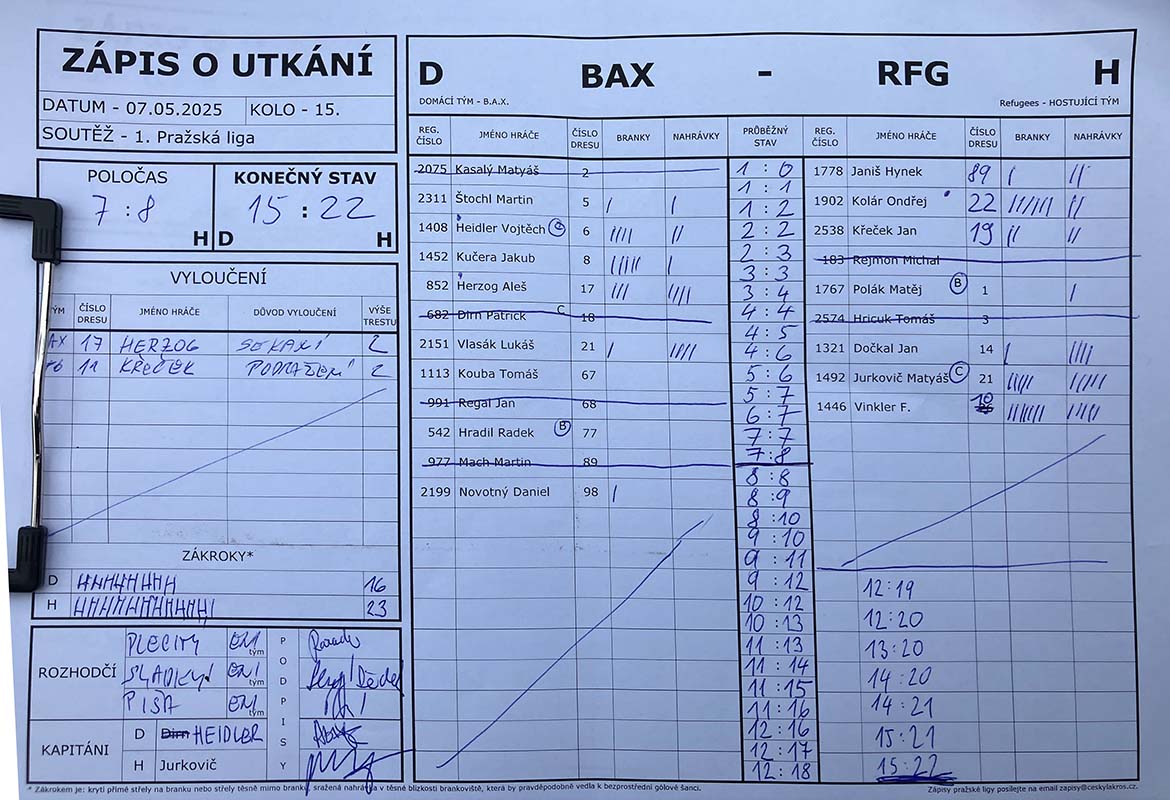 ZÁPIS O UTKÁNÍ
DATUM - 07.05.2025 KOLO - 15.
SOUTĚŽ - 1. Pražská liga
POLOČAS KONEČNÝ STAV
7 : 8 15 : 22
H D H
VYLOUČENÍ
ČÍSLO DRESU JMÉNO HRÁČE DŮVOD VYLOUČENÍ VÝŠE TRESTU
AX 17 HERZOG SEKÁNÍ 2
11 KŘEČEK PODRAŽENÍ 2
ZÁKROKY*
D 16
H 23
ROZHODČÍ
PLECITY tým
SLADKEY tým
PIŠA tým
PODPISY
KAPITÁNI
D Dirn HEIDLER
H Jurkovič
D BAX - RFG H
DOMÁCÍ TÝM - B.A.X. Refugees - HOSTUJÍCÍ TÝM
REG. ČÍSLO JMÉNO HRÁČE ČÍSLO DRESU BRANKY NAHRÁVKY PRŮBĚŽNÝ STAV REG. ČÍSLO JMÉNO HRÁČE ČÍSLO DRESU BRANKY NAHRÁVKY
2075 Kasalý Matyáš 2
2311 Štochl Martin 5 / /
1408 Heidler Vojtěch C 6 //// //
1452 Kučera Jakub 8 ///// /
852 Herzog Aleš 17 /// ////
682 Dirn Patrick C 18
2151 Vlasák Lukáš 21 / ////
1113 Kouba Tomáš 67
991 Regal Jan 68
542 Hradil Radek B 77
977 Mach Martin 89
2199 Novotný Daniel 98 /
1 : 0
1 : 1
1 : 2
2 : 2
2 : 3
3 : 3
3 : 4
4 : 4
4 : 5
4 : 6
5 : 6
5 : 7
6 : 7
7 : 7
7 : 8
8 : 8
8 : 9
8 : 10
9 : 10
9 : 11
9 : 12
10 : 12
10 : 13
11 : 13
11 : 14
11 : 15
11 : 16
12 : 16
12 : 17
12 : 18
1778 Janiš Hynek 89 / //
1902 Kolár Ondřej 22 ////// //
2538 Křeček Jan 19 // //
183 Rejmon Michal
1767 Polák Matěj B 1 /
2574 Hricuk Tomáš 3
1321 Dočkal Jan 14 / ////
1492 Jurkovič Matyáš C 21 //// /////
1446 Vinkler F. 10 ////// ////
12 : 19
12 : 20
13 : 20
14 : 20
14 : 21
15 : 21
15 : 22
* Zákrokem je: krytí přímé střely na branku nebo střely těsně mimo branku, sražená nahrávka v těsné blízkosti brankoviště, která by pravděpodobně vedla k bezprostřední gólové šanci.
Zápisy pražské ligy posílejte na email zapisy@ceskylakros.cz.